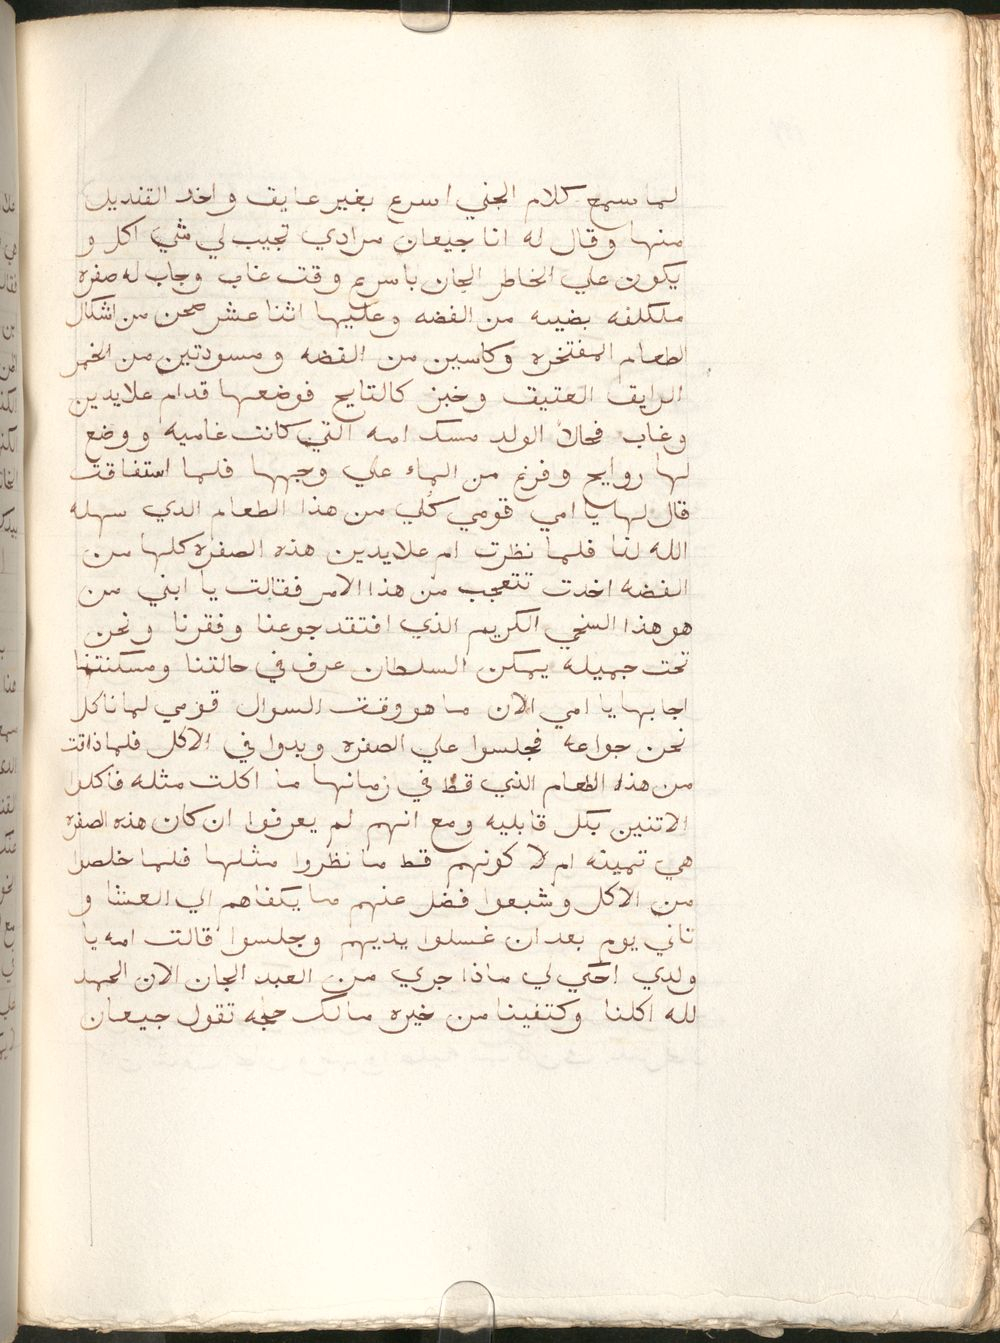 لما سمع كلام الجني اسرع بغير عايق واخد القنديل
منها وقال له انا جيعان مرادي تجيب لي شي اكل و
يكون علي الخاطر الجان باسرع وقت غاب وجاب له صفره
ملكلفه بضيه من الفضه وعليها اثنا عشر صحن من اشكال
الطعام المفتخره وكاسين من الفضه ومسودتين من الخمر
الرايق العتيق وخبز كالتايج فوضعها قدام علايدين
وغاب فحالا الولد مسك امه التي كانت غاميه ووضع
لها روايح وفرغ من الماء علي وجهها فلما استفاقت
قال لها يا امي قومي كلي من هذا الطعام الدي سهله
الله لنا فلما نظرت ام علايدين هذه الصفره كلها من
الفضه اخدت تتعجب من هذا الامر فقالت يا ابني من
هو هذا السخي الكريم الذي افتقد جوعنا وفقرنا ونحن
تحت جميله يمكن السلطان عرف في حالتنا ومسكنتنا
اجابها يا امي الان ما هو وقت السوال قومي لما ناكل
نحن جواعه فجلسوا علي الصفره وبدوا في الاكل فلما ذاقت
من هذه الطعام الذي قط في زمانها ما اكلت مثله فاكلوا
الاتنين بكل قابليه ومع انهم لم يعرفوا ان كان هذه الصفره
هي تمينه ام لا كونهم قط ما نظروا مثلها فلما خلصوا
من الاكل وشبعوا فضل عنهم ما يكفاهم الي العشا و
تاني يوم بعد ان غسلوا يديهم وجلسوا قالت امه يا
ولدي احكي لي ماذا جري من العبد الجان الان الحمد
لله اكلنا وكتفينا من خيره مالك حجه تقول جيعان